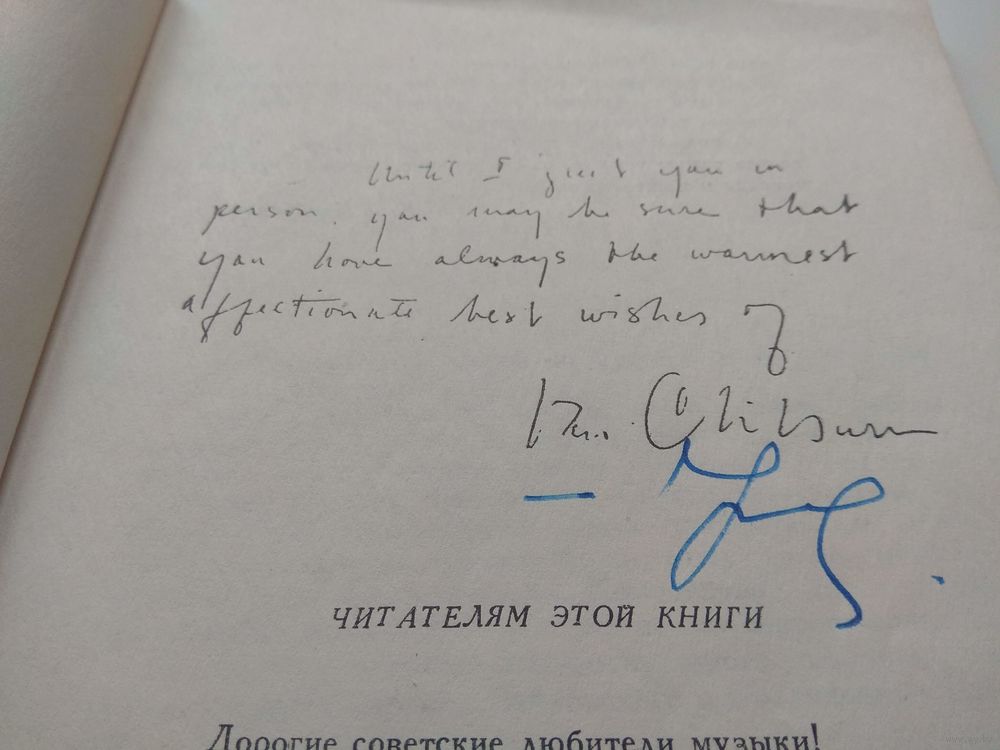 Until I greet you in
person. you may be sure that
you have always the warmest
affectionate best wishes of
Van Cliburn
ЧИТАТЕЛЯМ ЭТОЙ КНИГИ
Дорогие советские любители музыки!